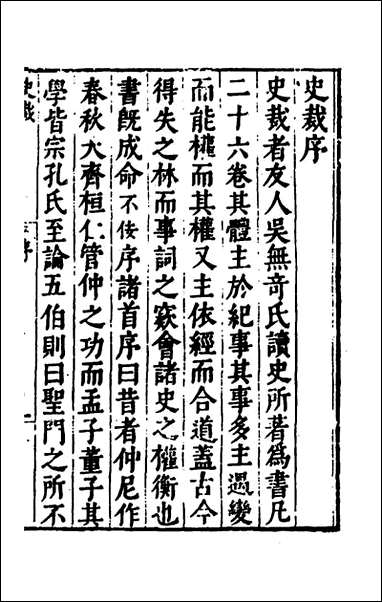 史裁序
史裁者友人吳無奇氏讀史所著為書凡
二十六卷其體主於紀事其事多主遇變
而能權而其權又主依經而合道蓋古今
得失之林而事詞之窾會諸史之權衡也
書既成命不佞序諸首序曰昔者仲尼作
春秋大齊桓仁管仲之功而孟子董子其
學皆宗孔氏至論五伯則曰聖門之所不
史裁
序
一